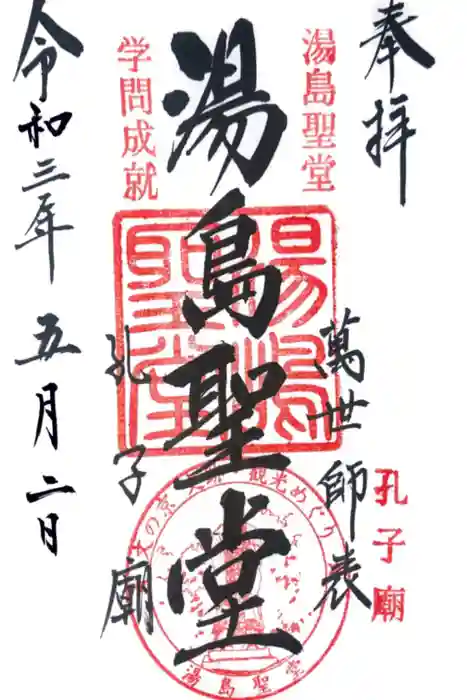 奉拝
湯島聖堂
萬世師表
孔子廟
湯島聖堂
湯島聖堂
学問成就
孔子廟
令和三年五月二日
観光めぐり
湯島聖堂